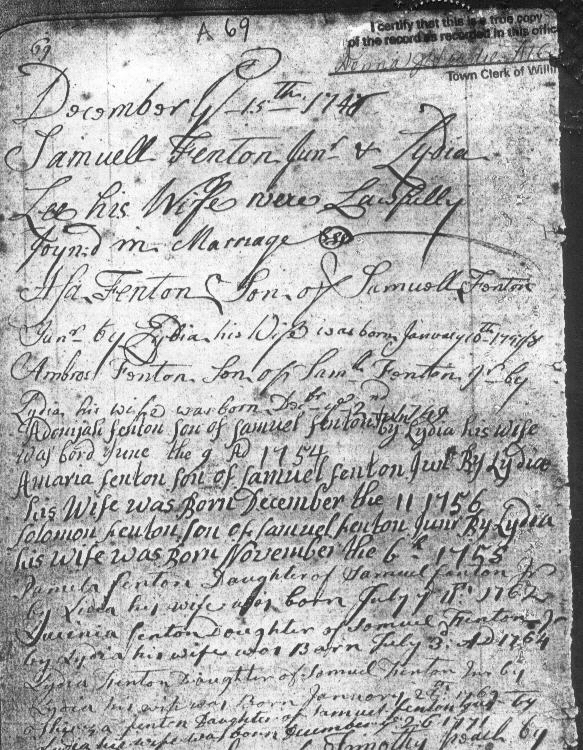 A 69
69
I certify that this is a true copy
of the record as recorded in this offic
Town Clerk of Willin
December ye 15th 174
Samuell Fenton Junr & Lydia
Lee his Wife were Lawfully
Joynd in Marriage
Asa Fenton Son of Samuell Fenton
Junr by Lydia his Wife was born January 10th
Ambros Fenton Son of Samll Fenton Jr by
Lydia his wife was born Decbr ye 2nd
Adonijah fenton son of samuel fenton by Lydia his wife
was bord June the 9 AD 1754
Amaria fenton son of samuel fenton Junr By Lydia
his Wife was Born December the 11 1756
solomon fenton son of samuel fenton Junr By Lydia
his wife was Born November the 6th 1755
Pamela Fenton Daughter of Samuel fenton Jr
by Lydia his wife was born July 7th 1762
Lucinia fenton Daughter of Samuel Fenton Jr
by Lydia his wife was Born July 3d AD 1764
Lydia Fenton Daughter of Samuel Fenton Junr by
Lydia his wife was Born January 2
fenton Daughter of Samuel fenton Junr by
Lydia his wife was born December 26 1771
Timothy by